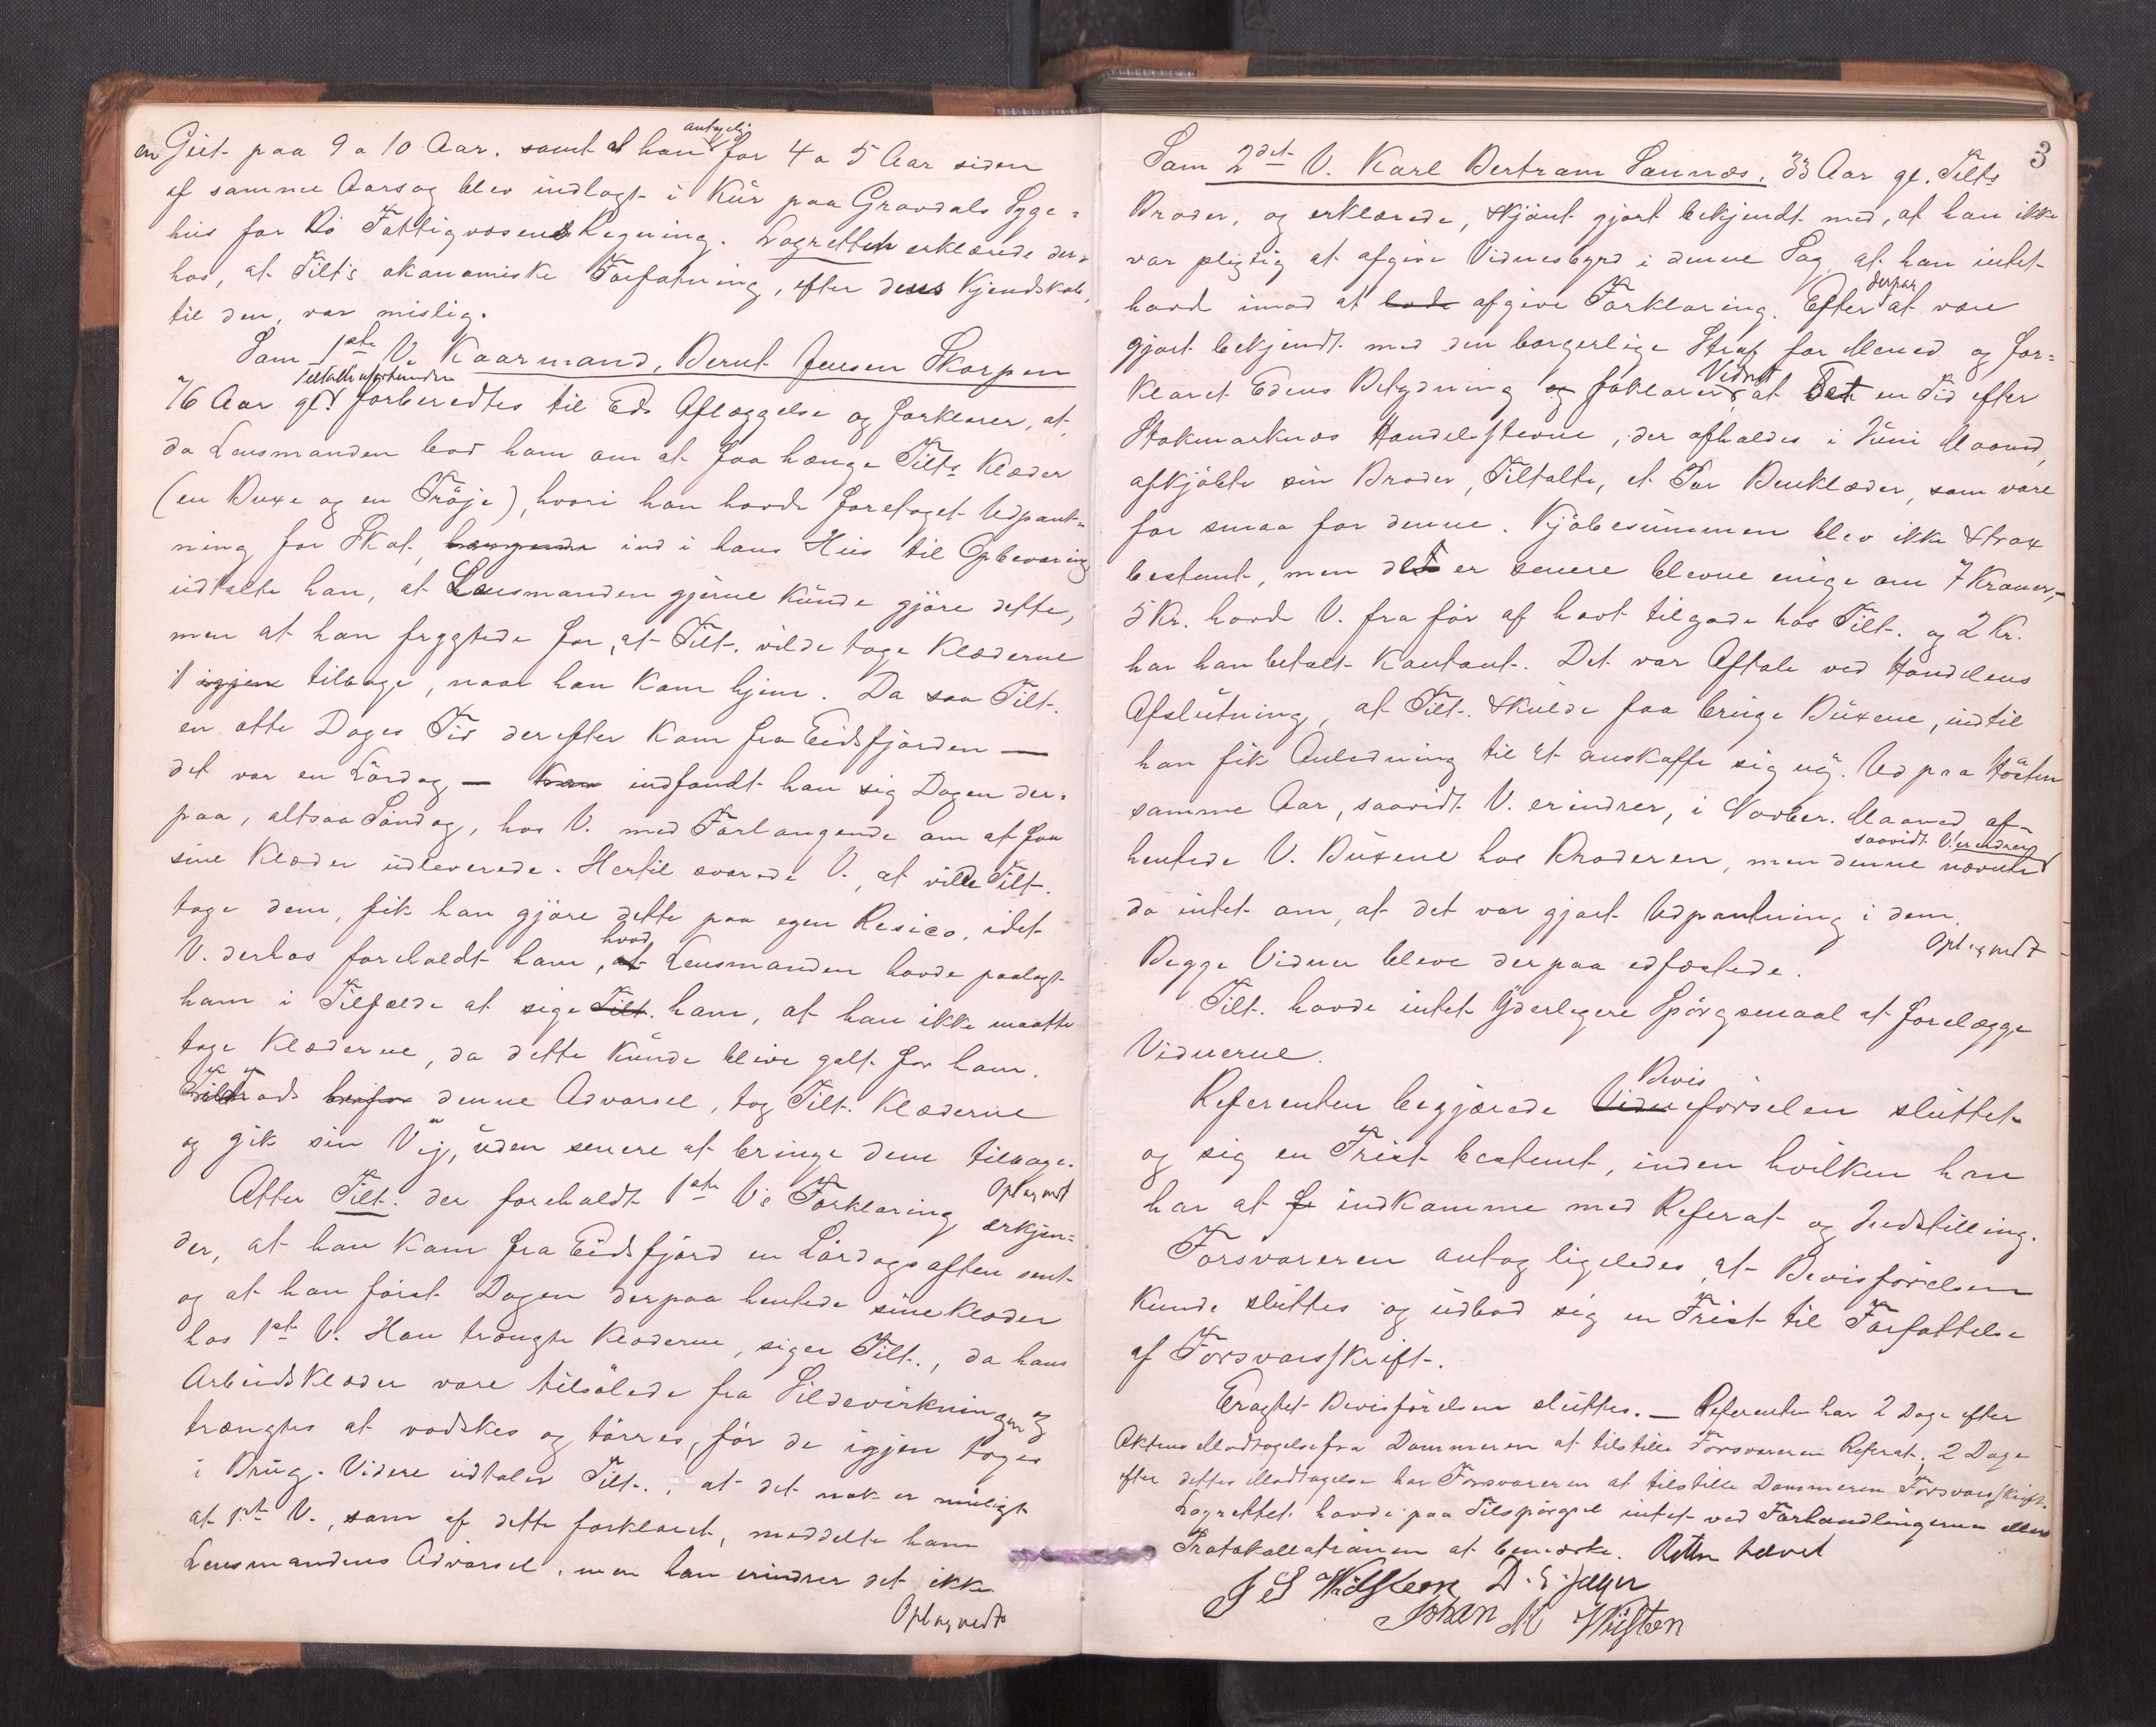 en Gut paa 9 a 10 Aar. samt at han antagelig for 4 a 5 Aar siden
af samme Aarsag blev indlagt i Kur paa Gravdals Syge=
hus for Bø Fattigvæsens Regning. Lagretten erklærede der=
hos, at Tilt's økonomiske Forfatning, efter dens Kjendskab
til den, var mislig.
Som 1ste V. Kaarmand, Bernt Jensen Skarpen
76 Aar gl. Tiltalte uforbunden forberedtes til Eds Aflæggelse og forklarer, at
da Lensmanden bad ham om at faa hænge Tilts Klæder
(en Buxe og en Trøje), hvori han havde foretaget Udpant=
ning for Skat, hængende ind i hans Hus til Opbevaring
udtalte han, at Lensmanden gjerne kunde gjøre dette,
men at han frygtede for, at Tilt. vilde tage Klæderne
igjen tilbage, naar han kom hjem. Da saa Tilt.
en otte Dages Tid derefter kom fra Eidsfjorden —
det var en Lørdag — kom indfandt han sig Dagen der=
paa, altsaa Søndag, hos V. med Forlangende om at faa
sine Klæder udleverede. Hertil svarede V., at vilde Tilt.
tage dem, fik han gjøre dette paa egen Resico, idet
V. derhos foreholdt ham, at hvad Lensmanden havde paalagt
ham i Tilfælde at sige Tilt. ham, at han ikke maatte
tage Klæderne, da dette kunde blive galt for ham.
Tiltrods denne Advarsel, tog Tilt. Klæderne
og gik sin Vej, uden senere at bringe dem tilbage.
Oplæst vedt
Atter Tilt. der foreholdt 1ste V's Forklaring erkjen=
der, at han kom fra Eidsfjord en Lørdagsaften sent
og at han først Dagen derpaa hentede sine Klæder
hos 1ste V. Han trængte Klæderne, siger Tilt., da hans
Arbeidsklæder vare tilsølede fra Sildevirkningen og
trængtes at vadskes og tørres, før de igjen toges
i Brug. Videre udtaler Tilt., at det nok er muligt
at 1ste V., som af dette forklaret, meddelte ham
Lensmandens Advarsel, men han erindrer det ikke
Opl og vedt
3
Som 2det V. Karl Bertram Sannæs, 33 Aar gl. Tilts
Broder, og erklærede, skjønt gjort bekjendt med, at han ikke
var pligtig at afgive Vidnesbyrd i denne Sag, at han intet
havd imod at lade afgive Forklaring. Efter derpaa at være
gjort bekjendt med den borgerlige Straf for Mened og for=
klaret Edens Betydning og foklarer Vidnet at det en Tid efter
Stokmarknæs Handelsstevne, der afholdes i Juni Maaned,
afkjøbte sin Broder, Tiltalte, et Par Benklæder, som vare
for smaa for denne. Kjøbesummen blev ikke strax
bestemt, men de er senere blevne enige om 7 Kroner,-
5 Kr. havde V. fra før af havt tilgode hos Tilt. og 2 Kr.
har han betalt kontant. Det var Aftale ved Handelens
Afslutning, at Tilt. skulde faa bruge Buxene, indtil
han fik Anledning til at anskaffe sig ny. Ud paa Høsten
samme Aar, saavidt V. erindrer, i Novber. Maaned af=
hentede V. Buxene hos Broderen, men denne nævnte saavidt V. erindrer
da intet om, at det var gjort Udpantning i dem.
Opl og vedt
Begge Vidner bleve derpaa edfæstede.
Tilt. havde intet yderligere Spørgsmaal at forelægge
Vidnerne.
Referenten begjærede Vidne Bevis førselen sluttet
og sig en Frist bestemt, inden hvilken han
har at fr indkomme med Referat og Indstilling.
Forsvareren antog ligeledes, at Bevisførelsen
kunde sluttes og udbad sig en Frist til Forfattelse
af Forsvarsskrift.
Eragtet Bevisførelsen sluttes. — Referenten har 2 Dage efter
Aktens Modtagelse fra Dommeren at tilstille Forsvareren Referat, 2 Dage
efter dettes Modtagelse har Forsvareren at tilstille Dommeren Forsvarsskrift.
Lagrettet havde paa Tilspørgsel intet ved Forhandlingerne eller
Protokollationen at bemærke. Retten hævet
Johan M